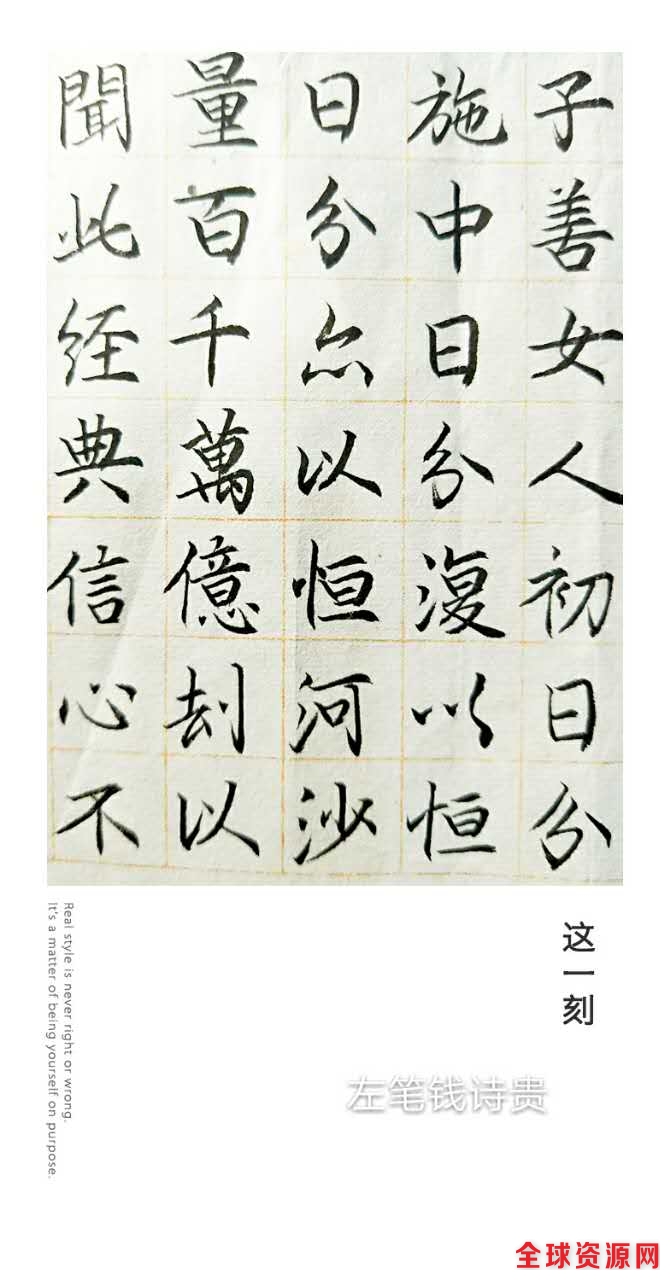 子善女人初日分
施中日分復以恒
日分亦以恒河沙
量百千萬億刦以
聞此經典信心不
这一刻
Real style is never right or wrong.
It's a matter of being yourself on purpose.
左笔钱诗贵
全球资源网